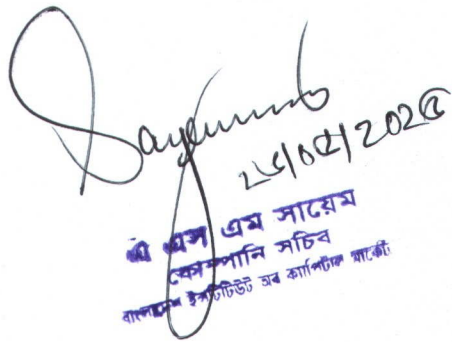 Sayem
এ এস এম সায়েম
কোম্পানি সচিব
বাংলাদেশ ইন্সটিটিউট অব ক্যাপিটাল মার্কেট